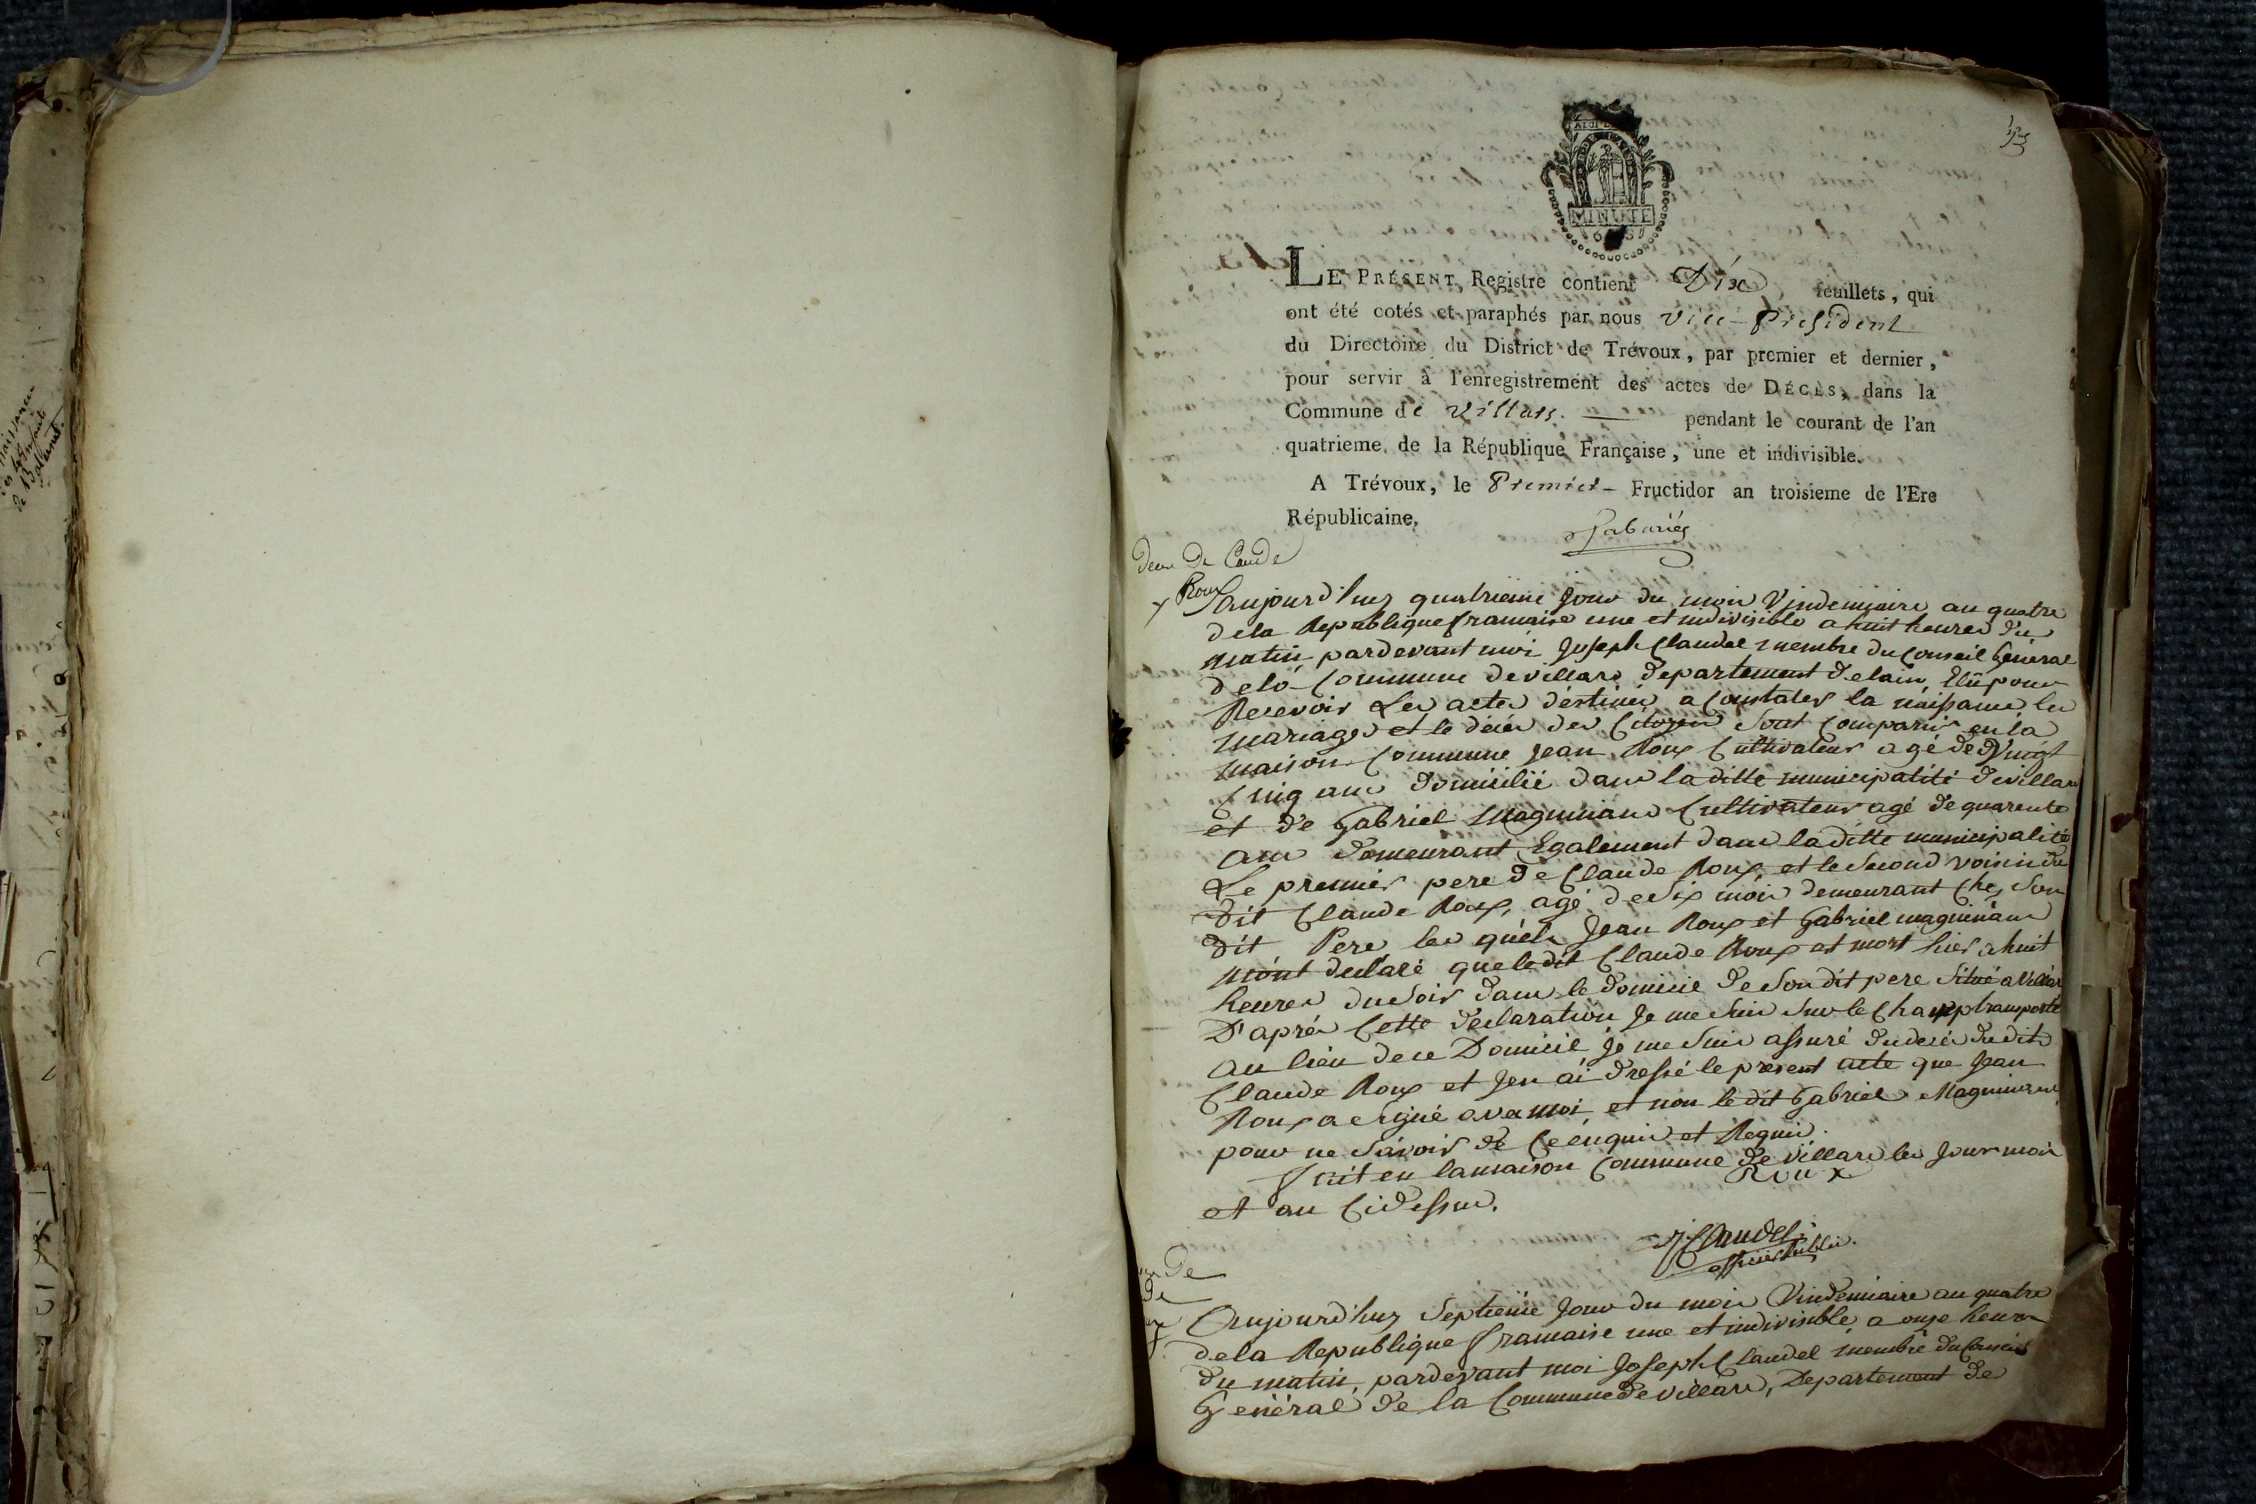 MINUTE
LE PRÉSENT, Registre contient Dix feuillets, qui
ont été cotés et paraphés par nous Vice-président
du Directoire du District de Trévoux, par premier et dernier,
pour servir à l'enregistrement des actes de DÉCÈS, dans la
Commune de Villars. pendant le courant de l'an
quatrieme de la République Française, une et indivisible.
A Trévoux, le Premier Fructidor an troisieme de l'Ere
Républicaine.
Roux
aujourd'huy quatrième jour du mois Vindemiaire an quatre
dela Republique francaise une et indivisible a huit heures du
matin, pardevant moi Joseph Claudel membre du Conseil Général
dela Commune devillars departement delain, Elû pour
Recevoir Les actes déstinés a Constater la naissance les
mariages et le décés des Citoyens Sont Comparus en la
maison Commune Jean Roux Cultivateur agé de Vingt
Cinq ans domicilié dans la ditte municipalité devillars
et de Gabriel Magninand Cultivateur agé de quarente
ans demeurant Egalement dans laditte municipalité
Le premier pere de Claude Roux, et le Second voisin du
dit Claude Roux, agé de Six mois demeurant Chez Son
dit Pere les quels Jean Roux et Gabriel magninand
m'ont declaré que le dit Claude Roux est mort hier a huit
heures du Soir dans le domicile de Son dit pere Situé a Villars
D'aprés Cette declaration Je me Suis Sur le Champ transporté
au lieu de ce Domicile Je me Suis assuré du decés dudit
Claude Roux et Jen ai dressé le present acte que Jean
Roux a Signé avec moi et non le dit Gabriel Magninand
pour ne Savoir de Ce enquis et Requis.
Fait en la maison Commune de Villars les Jour mois
et an Cidessus.
Roux
J Claudel
officier Public.
de
Aujourd'huy Septième Jour du mois Vindémiaire an quatre
dela Republique francaise une et indivisible, a onze heures
du matin, pardevant moi Joseph Claudel membre du Conseil
Général de la Commune de villars, Departement de